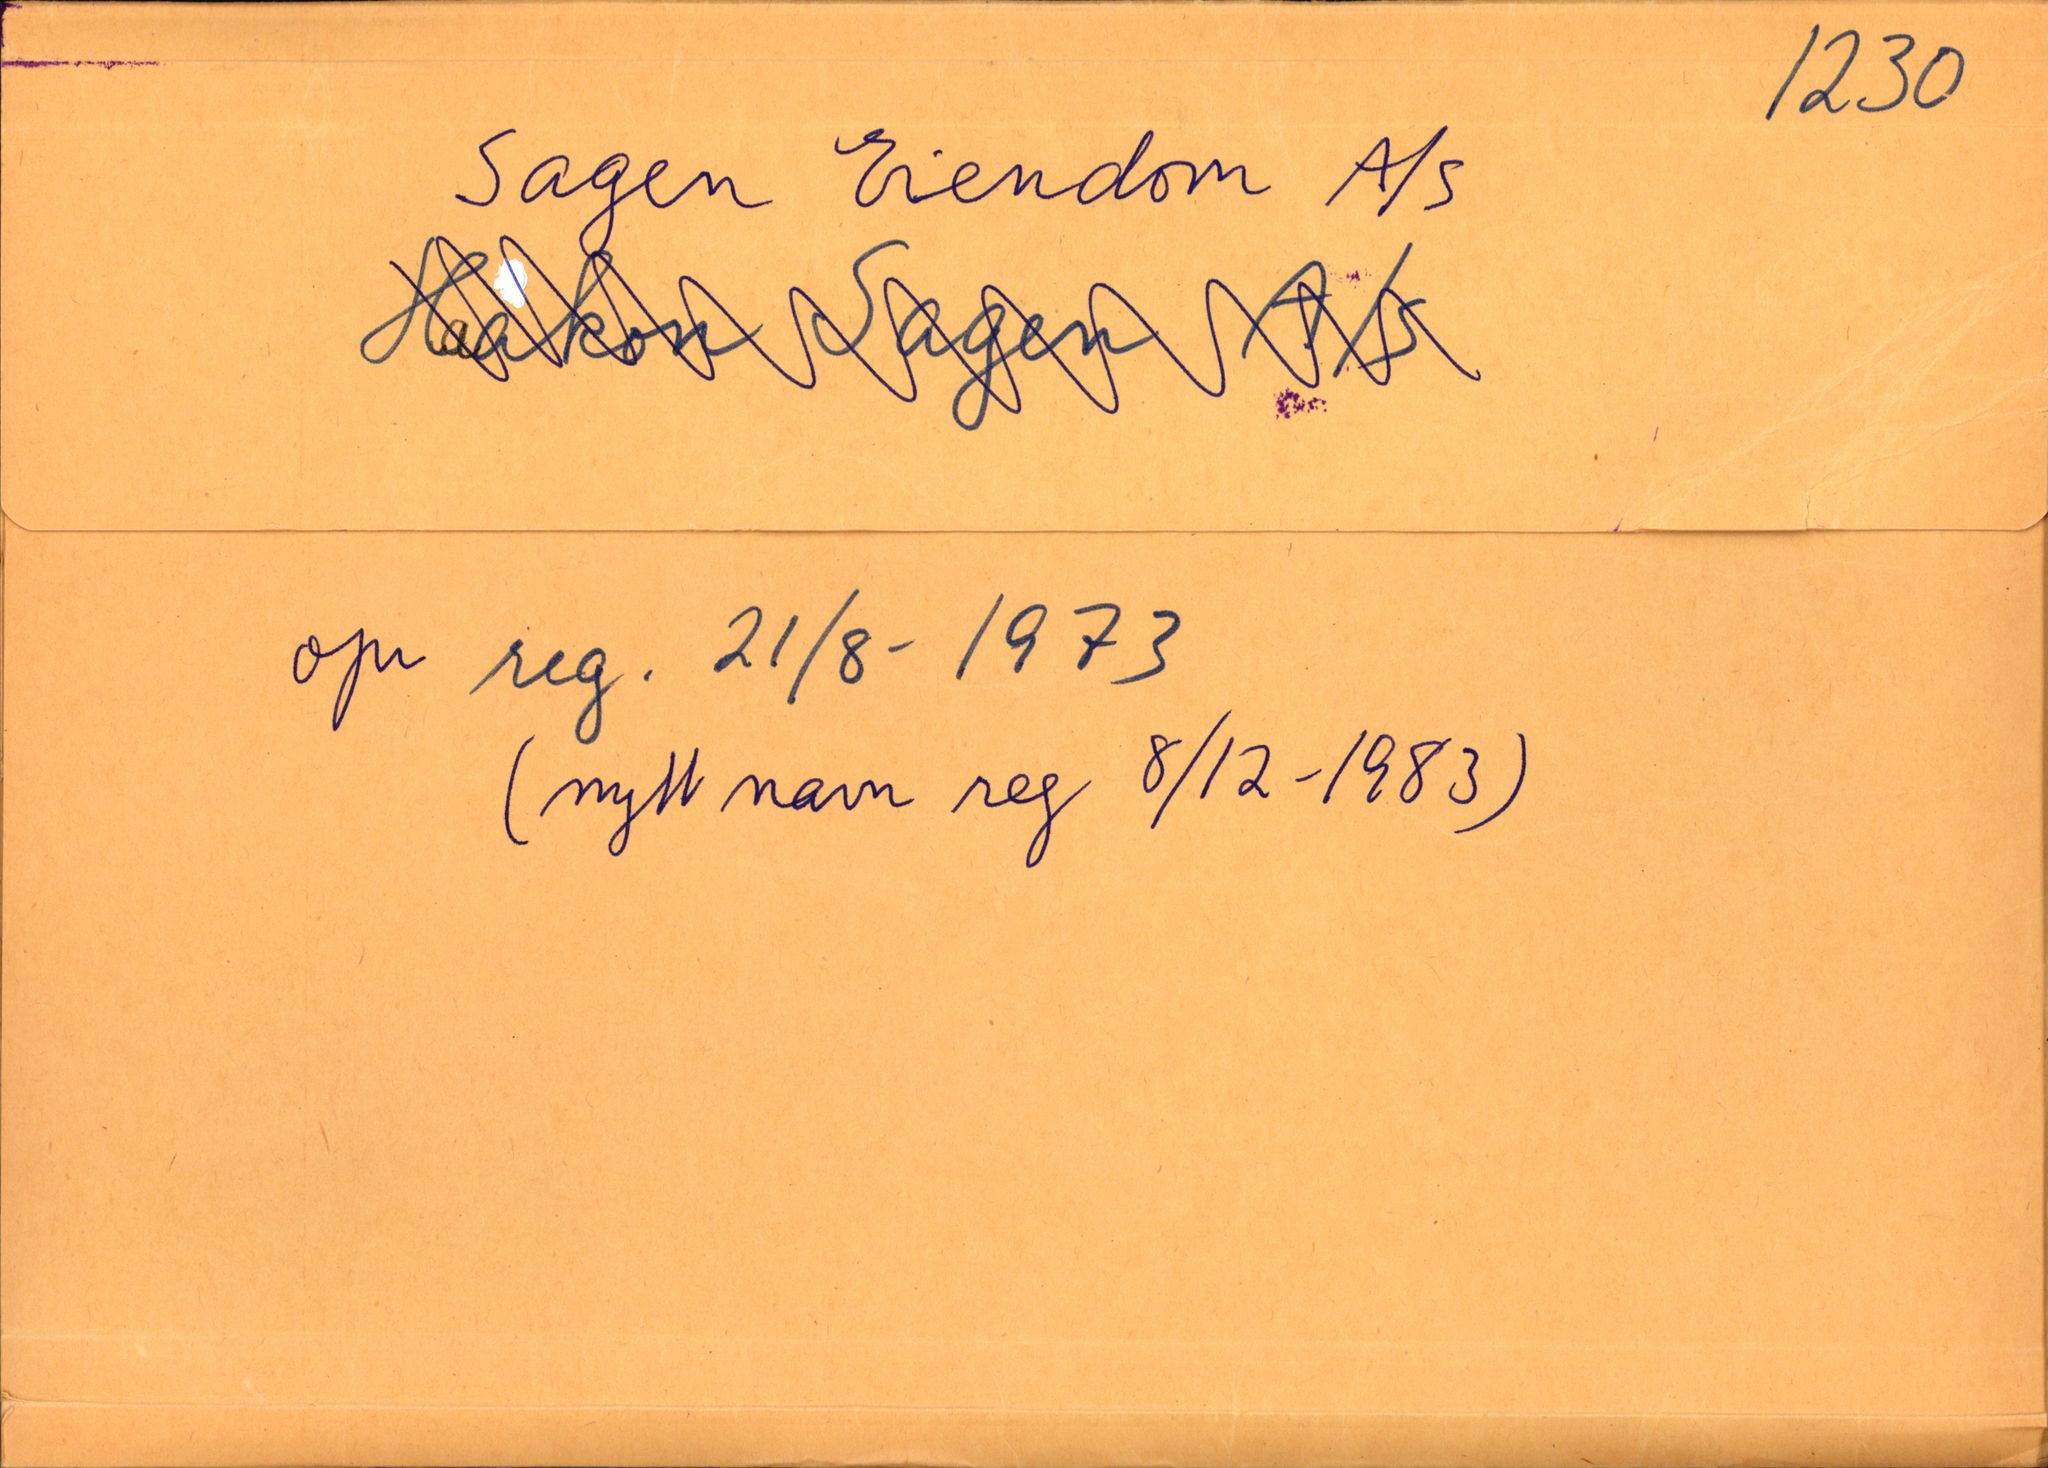 1230
Sagen Eiendom A/s
Haakon Sagen A/s
opr reg. 21/8-1973
(nytt navn reg 8/12-1983)